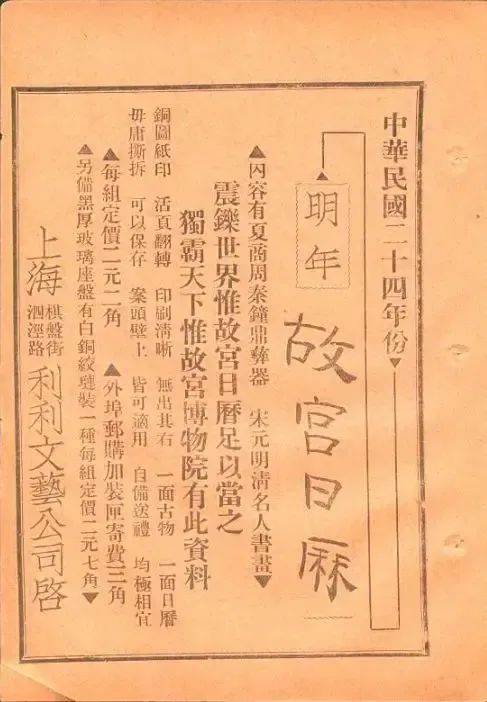 中華民國二十四年份
明年
故宮日厤
▲內容有夏商周秦鐘鼎彝器 宋元明清名人書畫▼
震鑠世界惟故宮日曆足以當之
獨霸天下惟故宮博物院有此資料
銅圖紙印 活頁翻轉 印刷清晰 無出其右 一面古物 一面日曆
毋庸撕拆 可以保存 案頭壁上 皆可適用 自備送禮 均極相宜
▲每組定價二元二角 ▲外埠郵購加裝匣寄費三角
▲另備黑厚玻璃座盤有白銅絞璉裝一種每組定價二元七角▼
上海 棋盤街 泗涇路 利利文藝公司啓